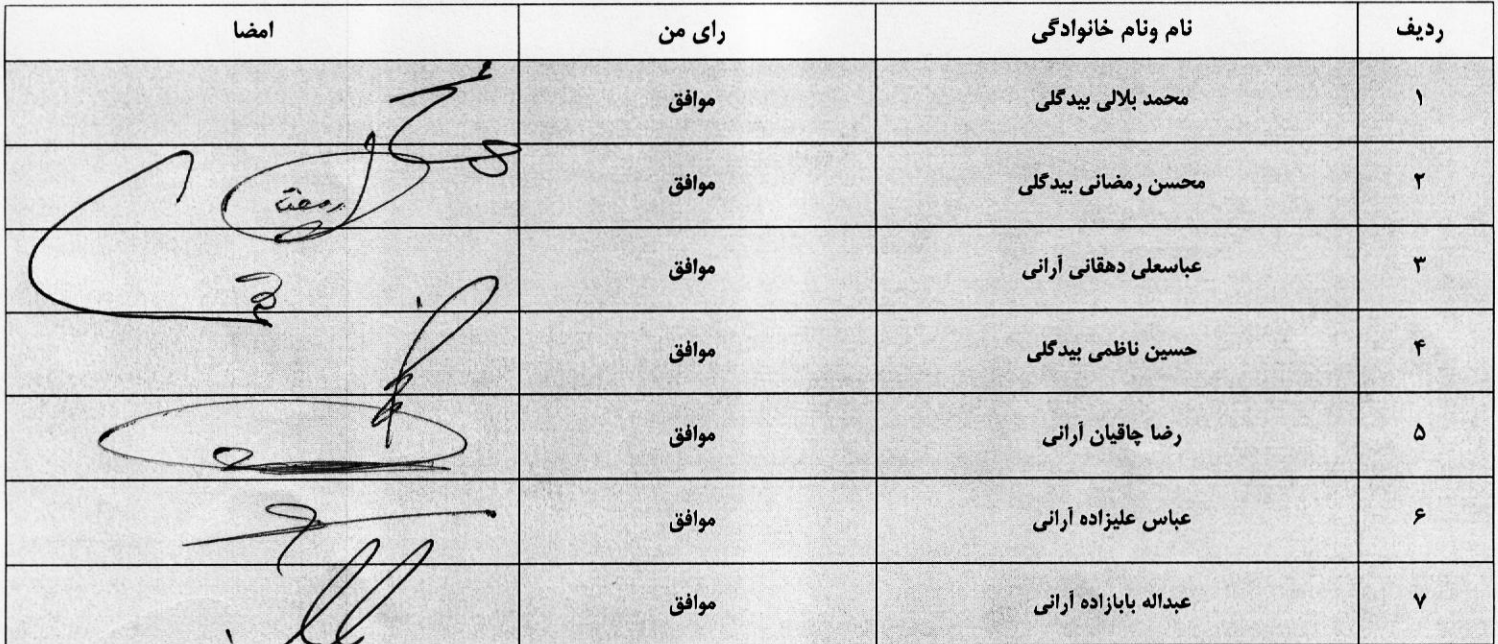 ردیف نام ونام خانوادگی رای من امضا
۱ محمد بلالی بیدگلی موافق
۲ محسن رمضانی بیدگلی موافق
۳ عباسعلی دهقانی آرانی موافق
۴ حسین ناظمی بیدگلی موافق
۵ رضا چاقیان آرانی موافق
۶ عباس علیزاده آرانی موافق
۷ عبداله بابازاده آرانی موافق